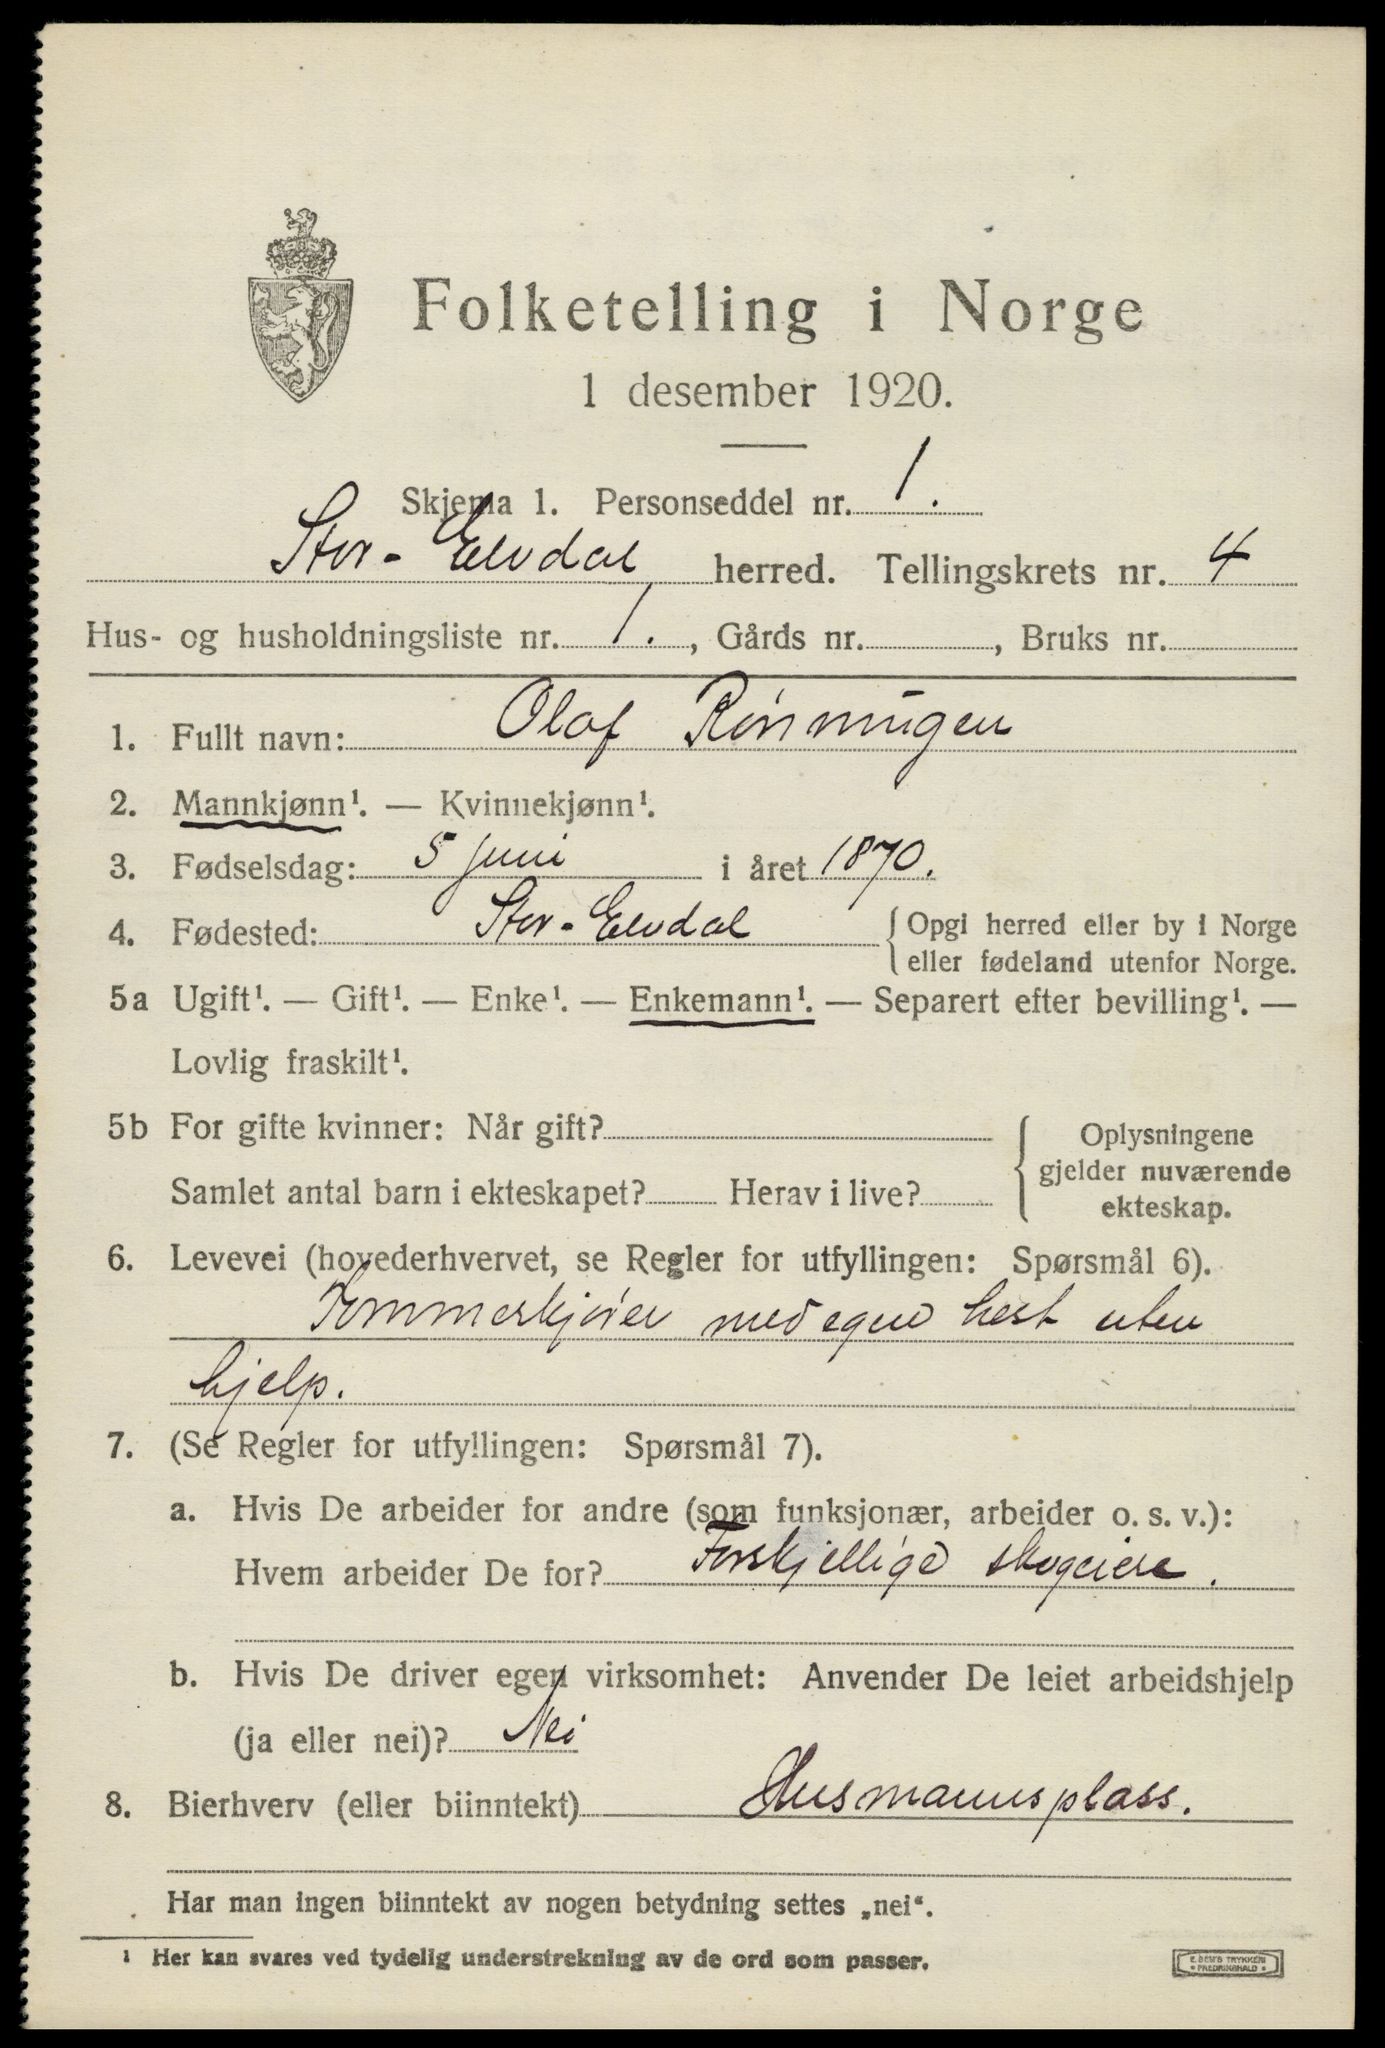 Folketelling i Norge
1 desember 1920.
Skjema 1. Personseddel nr. 1.
Stor-Elvdal herred. Tellingskrets nr. 4
Hus- og husholdningsliste nr. 1. , Gårds nr. , Bruks nr.
1. Fullt navn: Olaf Rønningen
2. Mannkjønn¹. — Kvinnekjønn¹.
3. Fødselsdag: 5 juni i året 1870.
4. Fødested: Stor-Elvdal {Opgi herred eller by i Norge
eller fødeland utenfor Norge.
5a Ugift¹. — Gift¹. — Enke¹. — Enkemann¹. — Separert efter bevilling¹. —
Lovlig fraskilt¹.
5b For gifte kvinner: Når gift? Oplysningene
gjelder nuværende
Samlet antal barn i ekteskapet? Herav i live?
ekteskap.
6. Levevei (hovederhvervet, se Regler for utfyllingen: Spørsmål 6).
Tømmerkjører med egen hest uten
hjelp.
7. (Se Regler for utfyllingen: Spørsmål 7).
a. Hvis De arbeider for andre (som funksjonær, arbeider o. s. v.):
Hvem arbeider De for? Forskjellige skogeiere.
b. Hvis De driver egen virksomhet: Anvender De leiet arbeidshjelp
(ja eller nei)? Nei
8. Bierhverv (eller biinntekt) Husmannsplass.
Har man ingen biinntekt av nogen betydning settes „nei“.
¹ Her kan svares ved tydelig understrekning av de ord som passer.
E. SEM'S TRYKKERI
• FREDRIKSHALD •